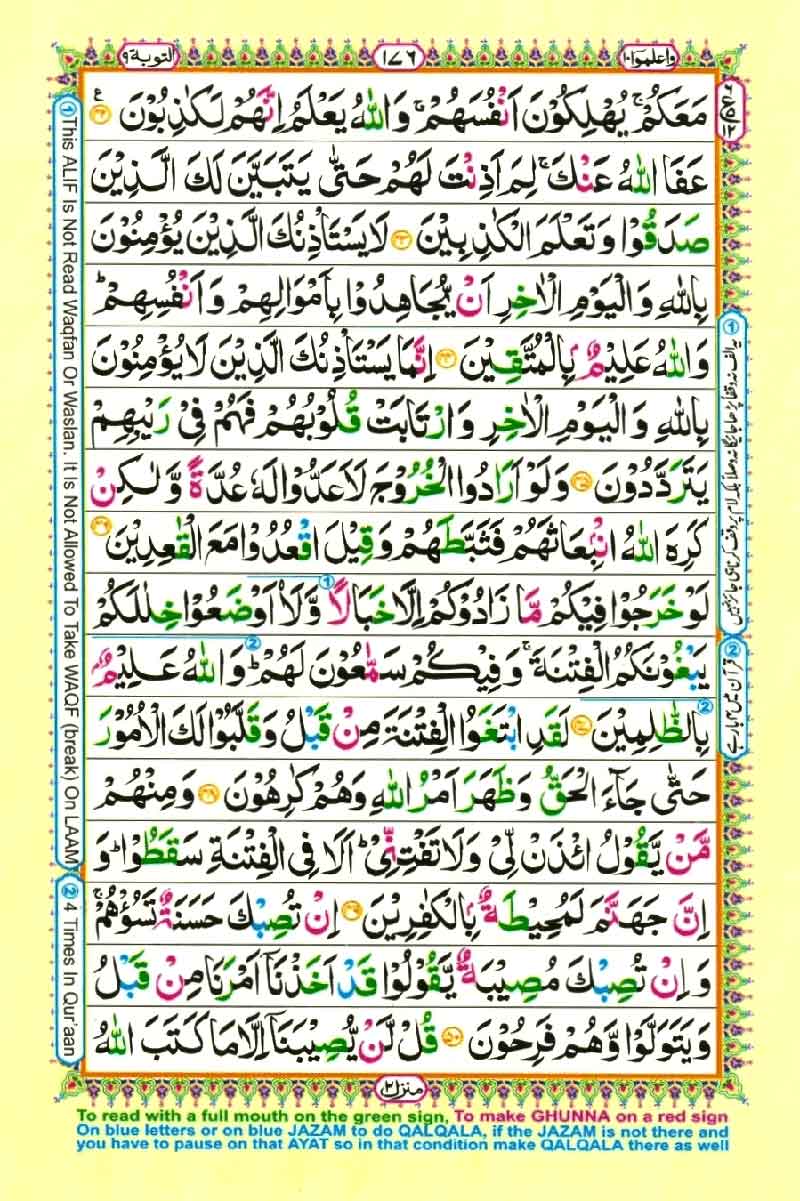 واعلموا ١٠
١٧٦
التوبة ٩
مَعَكُمْ ۚ يُهْلِكُوْنَ اَنْفُسَهُمْ ۚ وَاللّٰهُ يَعْلَمُ اِنَّهُمْ لَكٰذِبُوْنَ ۝٤٢
عَفَا اللّٰهُ عَنْكَ ۚ لِمَ اَذِنْتَ لَهُمْ حَتّٰى يَتَبَيَّنَ لَكَ الَّذِيْنَ
صَدَقُوْا وَتَعْلَمَ الْكٰذِبِيْنَ ۝٤٣ لَا يَسْتَاْذِنُكَ الَّذِيْنَ يُؤْمِنُوْنَ
بِاللّٰهِ وَالْيَوْمِ الْاٰخِرِ اَنْ يُّجَاهِدُوْا بِاَمْوَالِهِمْ وَاَنْفُسِهِمْ ؕ
وَاللّٰهُ عَلِيْمٌۢ بِالْمُتَّقِيْنَ ۝٤٤ اِنَّمَا يَسْتَاْذِنُكَ الَّذِيْنَ لَا يُؤْمِنُوْنَ
بِاللّٰهِ وَالْيَوْمِ الْاٰخِرِ وَارْتَابَتْ قُلُوْبُهُمْ فَهُمْ فِيْ رَيْبِهِمْ
يَتَرَدَّدُوْنَ ۝٤٥ وَلَوْ اَرَادُوا الْخُرُوْجَ لَاَعَدُّوْا لَهٗ عُدَّةً وَّلٰكِنْ
كَرِهَ اللّٰهُ انْۢبِعَاثَهُمْ فَثَبَّطَهُمْ وَقِيْلَ اقْعُدُوْا مَعَ الْقٰعِدِيْنَ ۝٤٦
لَوْ خَرَجُوْا فِيْكُمْ مَّا زَادُوْكُمْ اِلَّا خَبَالًا وَّلَا۟اَوْضَعُوْا خِلٰلَكُمْ
يَبْغُوْنَكُمُ الْفِتْنَةَ ۚ وَفِيْكُمْ سَمّٰعُوْنَ لَهُمْ ؕ وَاللّٰهُ عَلِيْمٌۢ
بِالظّٰلِمِيْنَ ۝٤٧ لَقَدِ ابْتَغَوُا الْفِتْنَةَ مِنْ قَبْلُ وَقَلَّبُوْا لَكَ الْاُمُوْرَ
حَتّٰى جَآءَ الْحَقُّ وَظَهَرَ اَمْرُ اللّٰهِ وَهُمْ كٰرِهُوْنَ ۝٤٨ وَمِنْهُمْ
مَّنْ يَّقُوْلُ ائْذَنْ لِّيْ وَلَا تَفْتِنِّيْ ؕ اَلَا فِي الْفِتْنَةِ سَقَطُوْا ؕ وَ
اِنَّ جَهَنَّمَ لَمُحِيْطَةٌۢ بِالْكٰفِرِيْنَ ۝٤٩ اِنْ تُصِبْكَ حَسَنَةٌ تَسُؤْهُمْ ۚ
وَاِنْ تُصِبْكَ مُصِيْبَةٌ يَّقُوْلُوْا قَدْ اَخَذْنَاۤ اَمْرَنَا مِنْ قَبْلُ
وَيَتَوَلَّوْا وَّهُمْ فَرِحُوْنَ ۝٥٠ قُلْ لَّنْ يُّصِيْبَنَاۤ اِلَّا مَا كَتَبَ اللّٰهُ
منزل ٢
① This ALIF Is Not Read Waqfan Or Waslan. It Is Not Allowed To Take WAQF (break) On LAAM
② 4 Times In Qur'aan
To read with a full mouth on the green sign, To make GHUNNA on a red sign
On blue letters or on blue JAZAM to do QALQALA, if the JAZAM is not there and
you have to pause on that AYAT so in that condition make QALQALA there as well